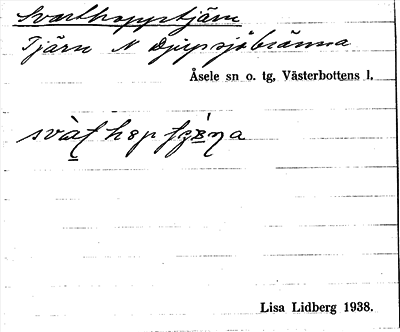 Svarthopptjärn
Tjärn N Djupsjöbränna
Åsele sn o. tg, Västerbottens l.
Lisa Lidberg 1938.